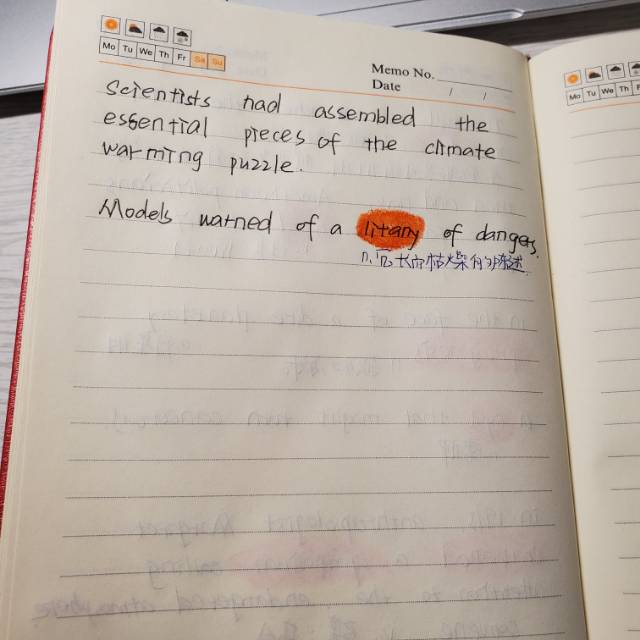 Mo Tu We Th Fr Sa Su
Memo No.
Date / /
Scientists had assembled the
essential pieces of the climate
warming puzzle.
Models warned of a litany of dangers.
n. 冗长而枯燥的陈述
Mo Tu We Th